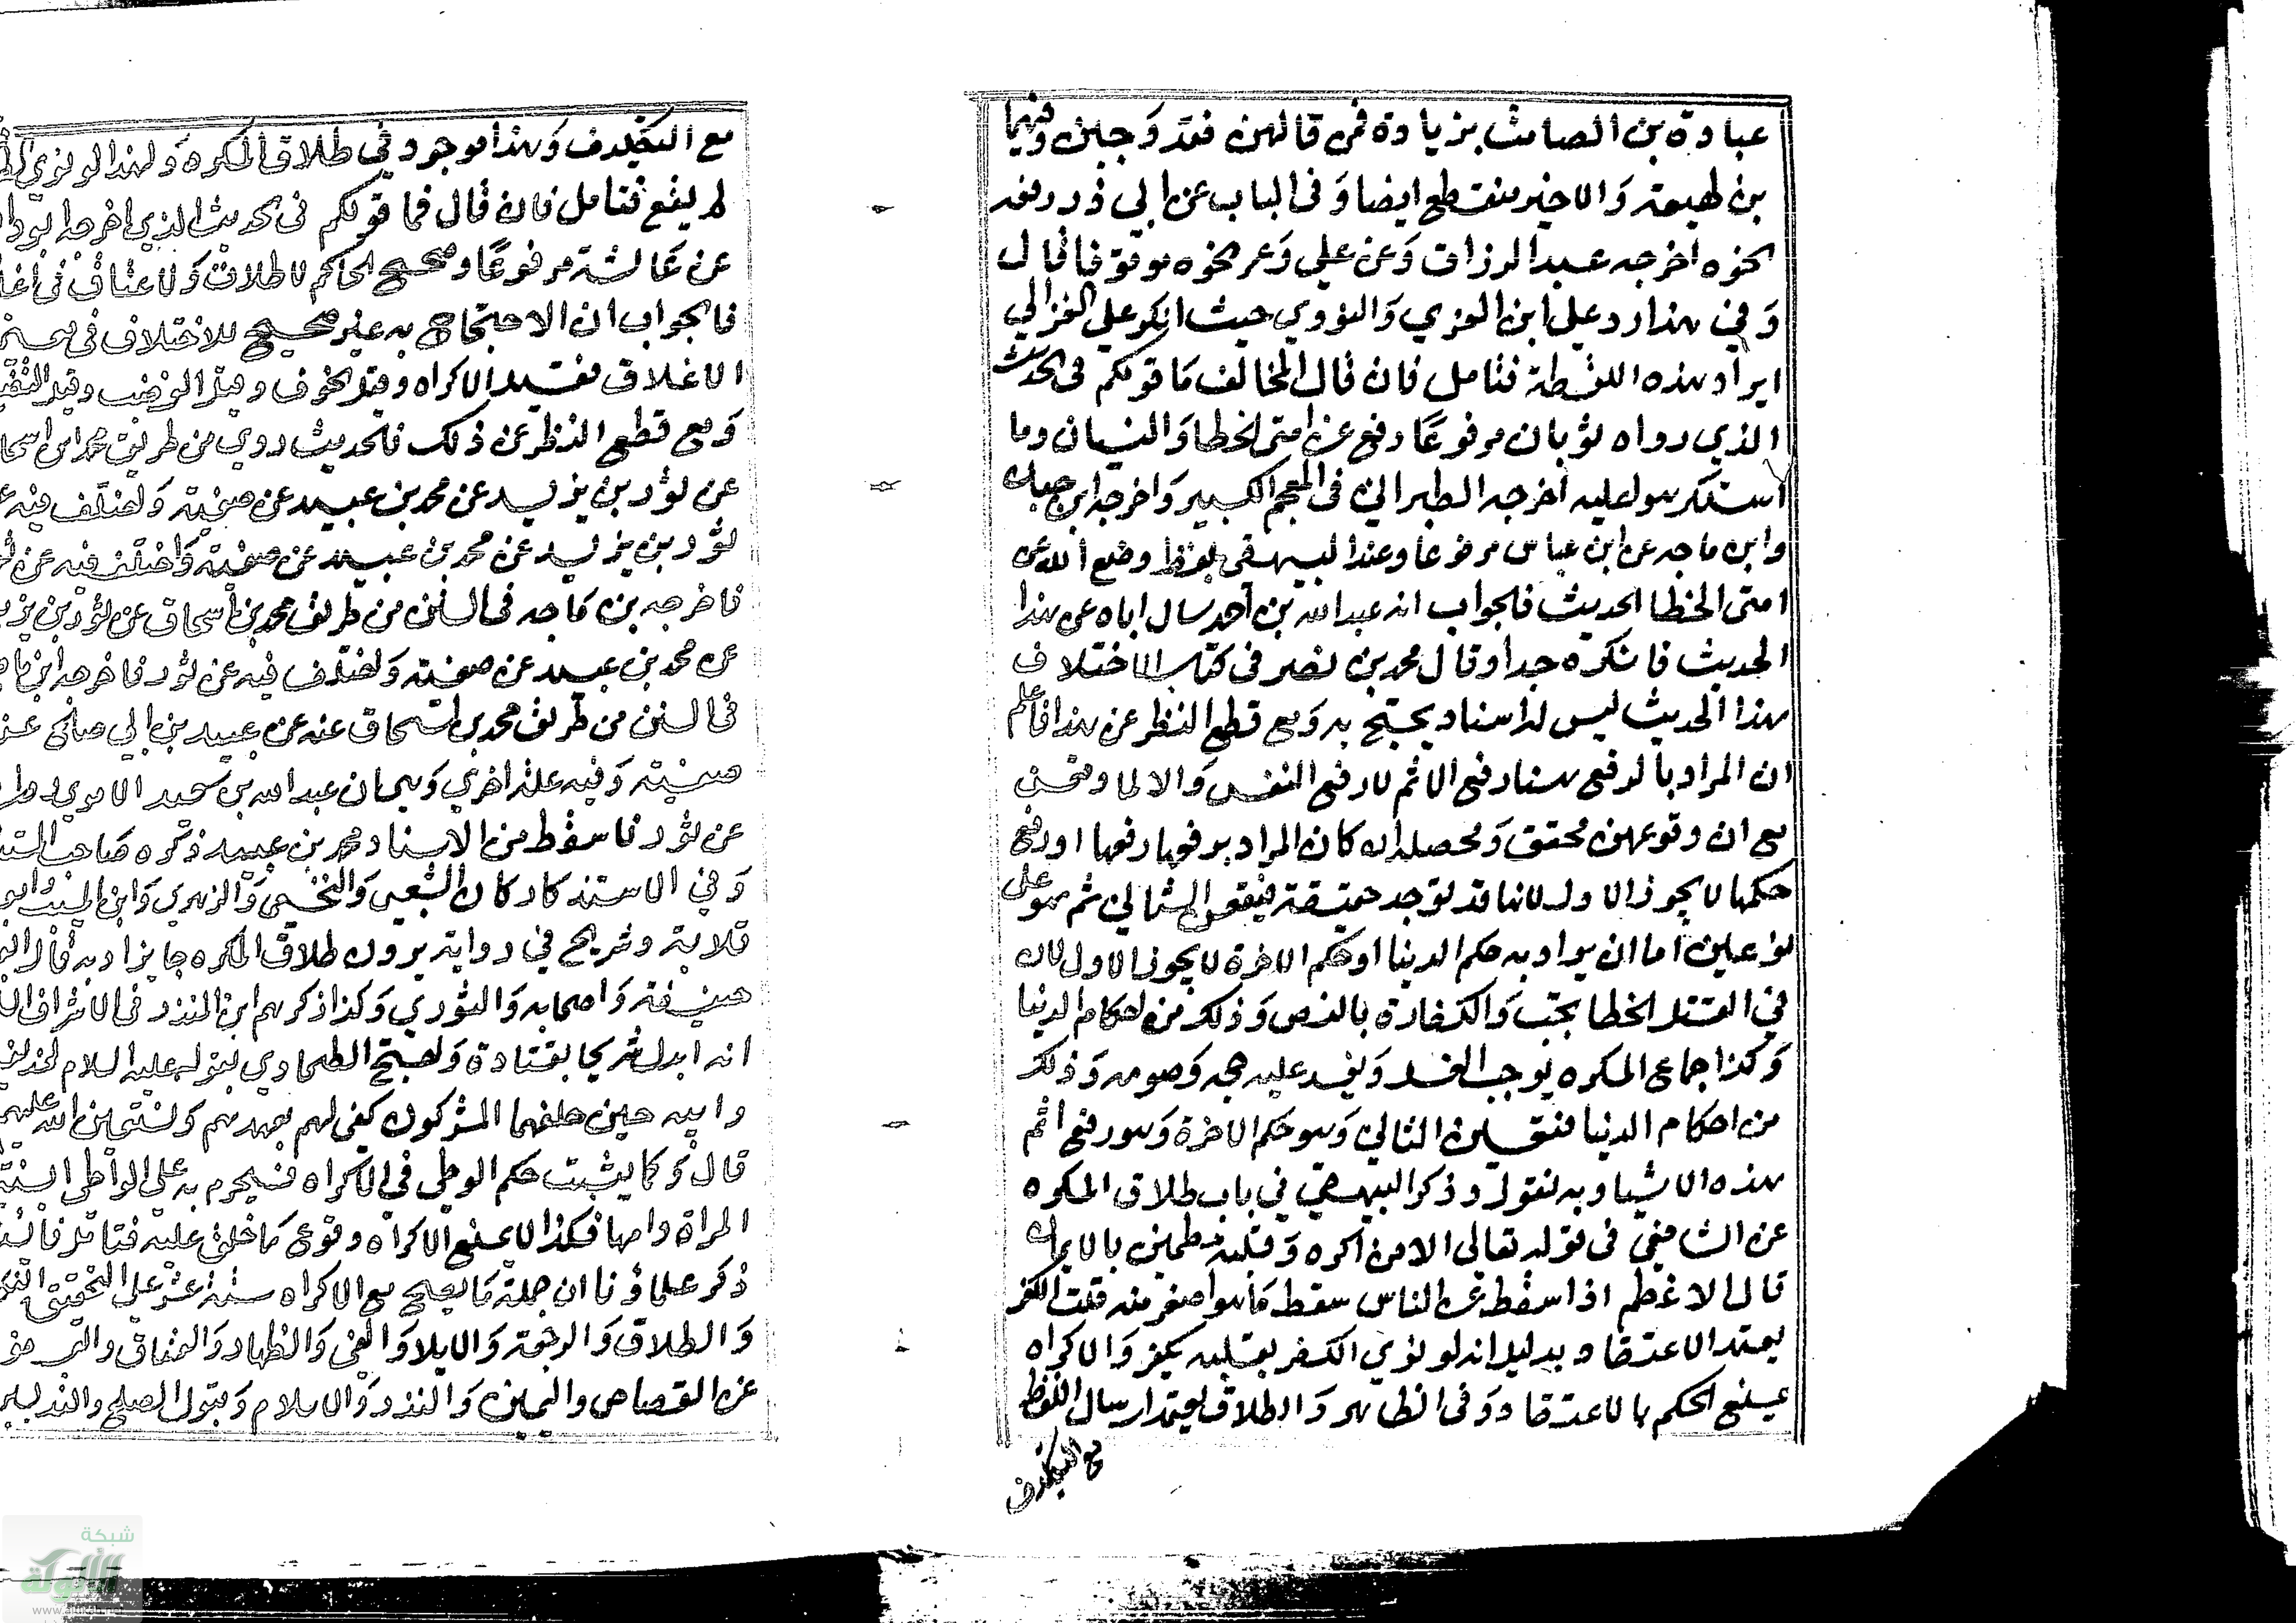 عبادة بن الصامت بزيادة فمن قالهن فقد وجبن وفيهما
بن لهيعة وَالاخير منقطع ايضا وَفى الباب عن ابي ذر رفعه
نحوه اخرجه عبد الرزاق وَعن علي وَعمر نحوه موقوفا قال
وَفي هذا رد على ابن العربي وَالنووي حيث انكر على الغزالي
ايراد هذه اللفظة فتامل فان قال المخالف مَا قولكم فى الحديث
الذي رواه ثوبان مرفوعًا رفع عن امتى الخطا وَالنسيان وما
استكرهوا عليه اخرجه الطبراني فى المعجم الكبير وَاخرجه ابن حبان
وابن ماجه عن ابن عباس مرفوعا وعند البيهقى بلفظ وضع الله عن
امتى الخطا الحديث فالجواب ان عبد الله بن احمد سال اباه عن هذا
الحديث فانكره جدا وقال محمد بن نصر فى كتاب الاختلاف
هذا الحديث ليس له اسناد يحتج به وَمع قطع النظر عن هذا فاعلم
ان المراد بالرفع هنا رفع الاثم لا رفع النفس وَالا لما وقعن
مع ان وقوعهن محقق وَمحصله ان كان المراد برفعها رفعها او رفع
حكمها لا يجوز الاول لانها قد توجد حقيقة فيتعين الثاني ثم هو على
نوعين اما ان يراد به حكم الدنيا او حكم الاخرة لا يجوز الاول لان
في القتل الخطا تجب وَالكفارة بالنص وَذلك من احكام الدنيا
وَكذا جماع المكره يوجب الغسل وَيفسد عليه حجه وَصومه وَذلك
من احكام الدنيا فتعين الثاني وَهو حكم الاخرة وَهو رفع اثم
هذه الاشيا وبه نقول وذكر البيهقي في باب طلاق المكره
عن الشافعي فى قوله تعالى الا من اكره وَقلبه مطمئن بالايمان
قال الاعظم اذا سقط عن الناس سقط مَا هو اصغر منه قلت الكفر
يعتمد الاعتقاد بدليل انه لو نوي الكفر بقلبه يكفر وَالاكراه
يمنع الحكم بالاعتقاد وَفى الظاهر وَالطلاق يعتمد ارسال اللفظ
مع التكليف
مع التكليف وَهذا موجود في طلاق المكره وَلهذا لو نوي
لم يقع فتامل فان قال فما قولكم فى الحديث الذي اخرجه ابو داود
عن عَائشة مرفوعًا وصححه الحاكم لا طلاق وَلا عتاق فى اغلاق
فالجواب ان الاحتجاج به غير صحيح للاختلاف فى
الاغلاق فقيل الاكراه وقيل الجنون وقيل الغضب وقيل
وَمع قطع النظر عن ذلك فالحديث روي من طريق محمد ابن اسحاق
عن ثور بن يزيد عن محمد بن عبيد عن صفية وَاختلف فيه
ثور بن يزيد عن محمد بن عبيد عن صفية وَاختلف فيه عن
فاخرجه بن مَاجه فى السنن من طريق محمد بن اسحاق عن ثور بن يزيد
عن محمد بن عبيد عن صفية وَاختلف فيه عن ثور فاخرجه ابن
فى السنن من طريق محمد بن اسحاق عنه عن عبيد بن ابي صالح عن
صفية وَفيه علة اخري وَهي ان عبد الله بن سعيد الاموي
عن ثور فاسقط من الاسناد محمد بن عبيد ذكره صَاحب
وَفي الاستذكار كان الشعبي وَالنخعي وَالزهري وَابن المسيب وابو
قلابة وشريح في رواية يرون طلاق المكره جايزا وبه قال ابو
حنيفة وَاصحابه وَالثوري وَكذا ذكرهم ابن المنذر فى الاشراف
انه ابدل شريحا بقتادة وَاحتج الطحاوي بقوله عليه السلام لحذيفة
وابيه حين حلفهما المشركون نفي لهم بعهدهم وَنستعين الله عليهم
قال وَكما يثبت حكم الوطي فى الاكراه فيحرم به على الواطي ابنة
المراة وامها فكذا لا يمنع الاكراه وقوع مَا حلف عليه
ذكر علماؤنا ان جملة مَا يصح مع الاكراه ستة عشر على التحقيق
وَالطلاق وَالرجعة وَالايلا وَالفي وَالظهار وَالعتاق
عن القصاص واليمين وَالنذر وَالاسلام وَقبول الصلح والتدبير
شبكة
الألوكة
www.alukah.net